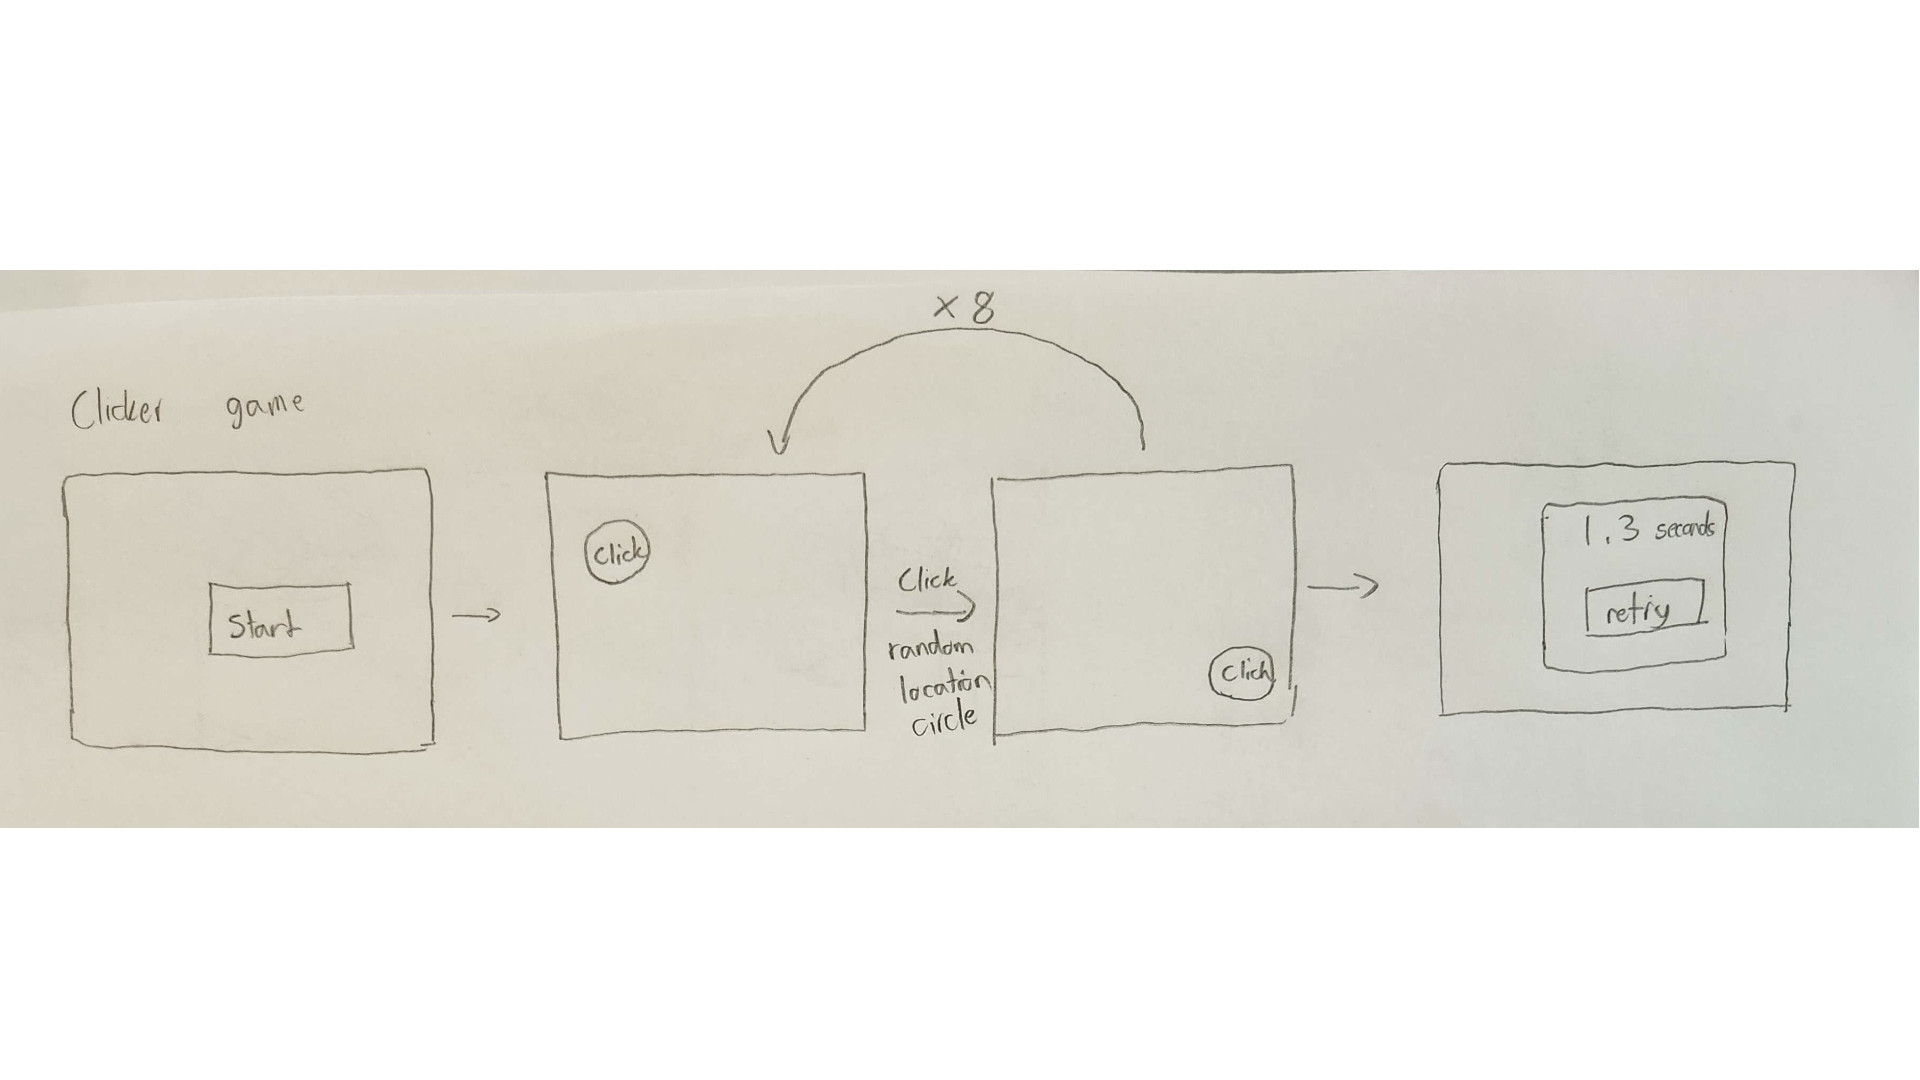 × 8
Clicker game
Start
Click
Click
random
location
circle
Click
1.3 seconds
retry